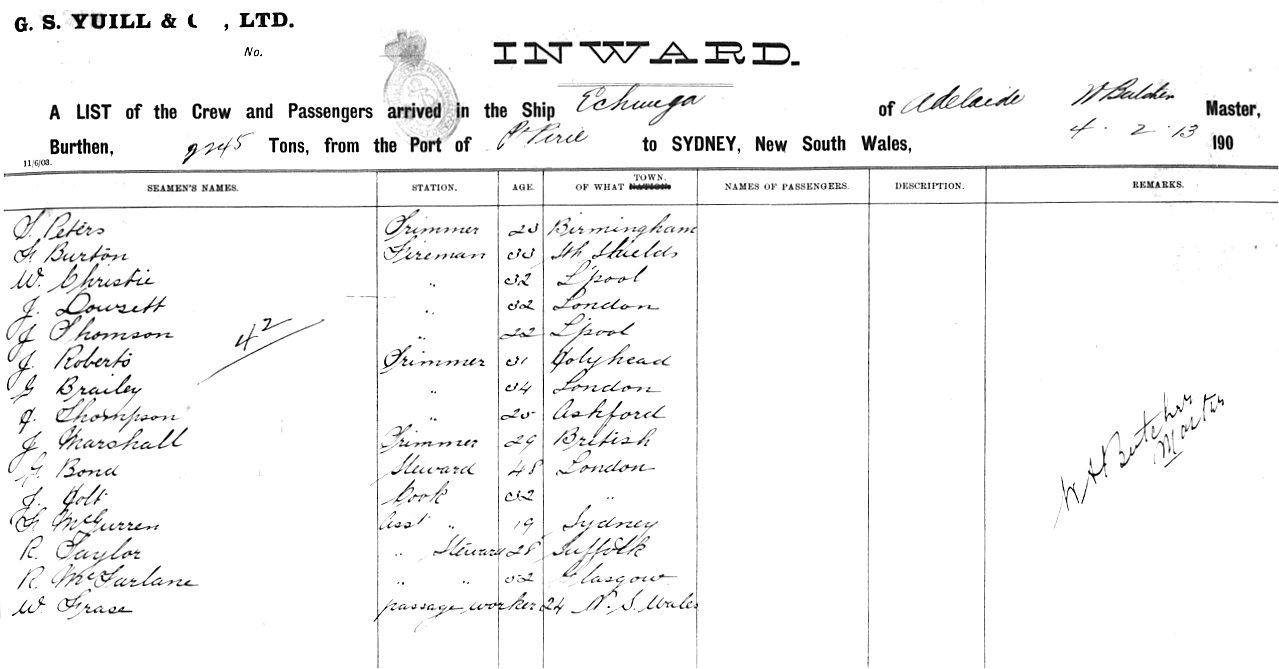 G. S. YUILL & C , LTD.
No.
INWARD.
A LIST of the Crew and Passengers arrived in the Ship Echunga of Adelaide W Butcher Master,
Burthen, 2245 Tons, from the Port of Pt Pirie to SYDNEY, New South Wales, 4. 2. 13 190
11/6/08.
SEAMEN'S NAMES. STATION. AGE. OF WHAT TOWN. NATION. NAMES OF PASSENGERS. DESCRIPTION. REMARKS.
Peters Trimmer 23 Birmingham
Burton Fireman 33 Sth Shields
W. Christie " 32 L'pool
J. Dowsett " 32 London
J Thomson " 22 L'pool
42
J. Roberts Trimmer 31 Holyhead
G Brailey " 34 London
J. Thompson " 25 Ashford
J Marshall Trimmer 29 British
Bond Steward 48 London
J. Holt Cook 32 "
McGurren Asst " 19 Sydney
R. Taylor " Steward 28 Suffolk
R. McFarlane " " 32 Glasgow
W. Frase passage worker 24 N. S. Wales
W H Butcher
Master